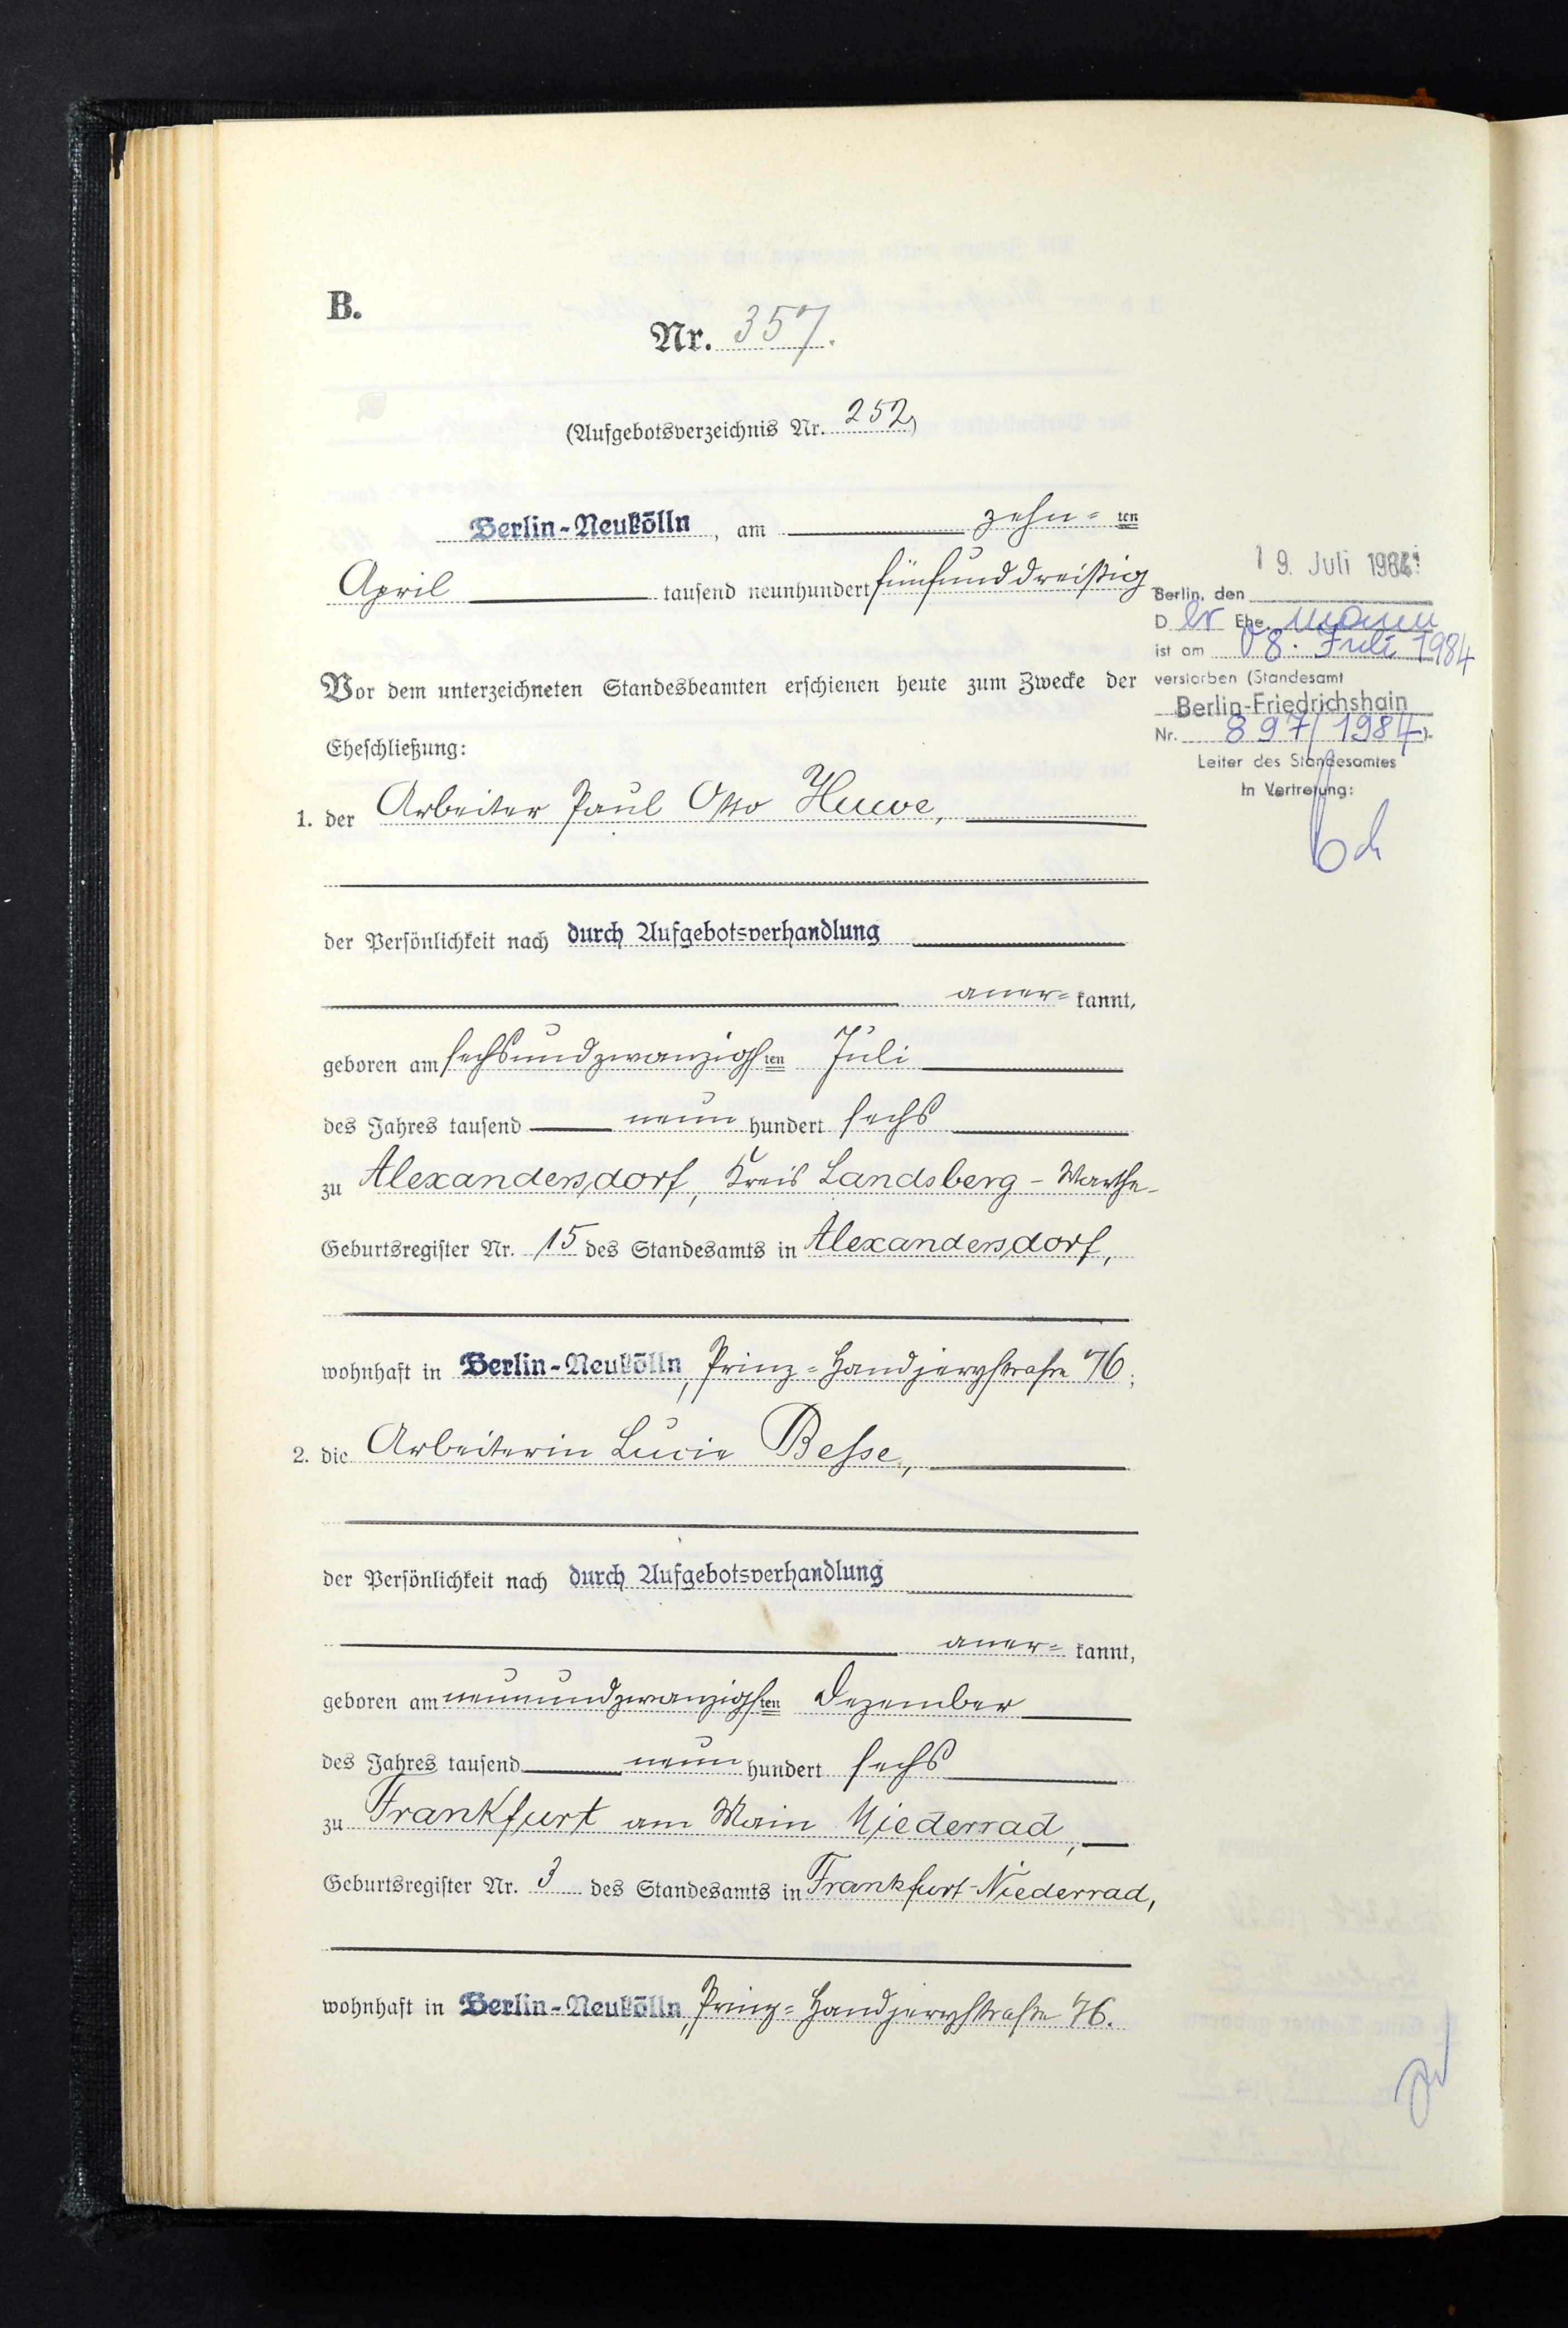 B.
Nr. 357.
(Aufgebotsverzeichnis Nr. 252)
Berlin-Neukölln, am zehn=ten
April tausend neunhundert fünfunddreißig
Vor dem unterzeichneten Standesbeamten erschienen heute zum Zwecke der
Eheschließung:
1. der Arbeiter Paul Otto Huwe,
der Persönlichkeit nach durch Aufgebotsverhandlung
aner= kannt,
geboren am sechsundzwanzigsten Juli
des Jahres tausend neun hundert sechs
zu Alexandersdorf, Kreis Landsberg - Warthe
Geburtsregister Nr. 15 des Standesamts in Alexandersdorf,
wohnhaft in Berlin-Neukölln, Prinz=Handjerystraße 76;
2. die Arbeiterin Lucie Besse,
der Persönlichkeit nach durch Aufgebotsverhandlung
aner= kannt,
geboren am neunundzwanzigsten Dezember
des Jahres tausend neun hundert sechs
zu Frankfurt am Main Niederrad,
Geburtsregister Nr. 3 des Standesamts in Frankfurt-Niederrad,
wohnhaft in Berlin-Neukölln, Prinz=Handjerystraße 76.
19. Juli 1984
Berlin, den
Der Ehemann
ist am 08. Juli 1984
verstorben (Standesamt
Berlin-Friedrichshain
Nr. 897/1984).
Leiter des Standesamtes
In Vertretung: